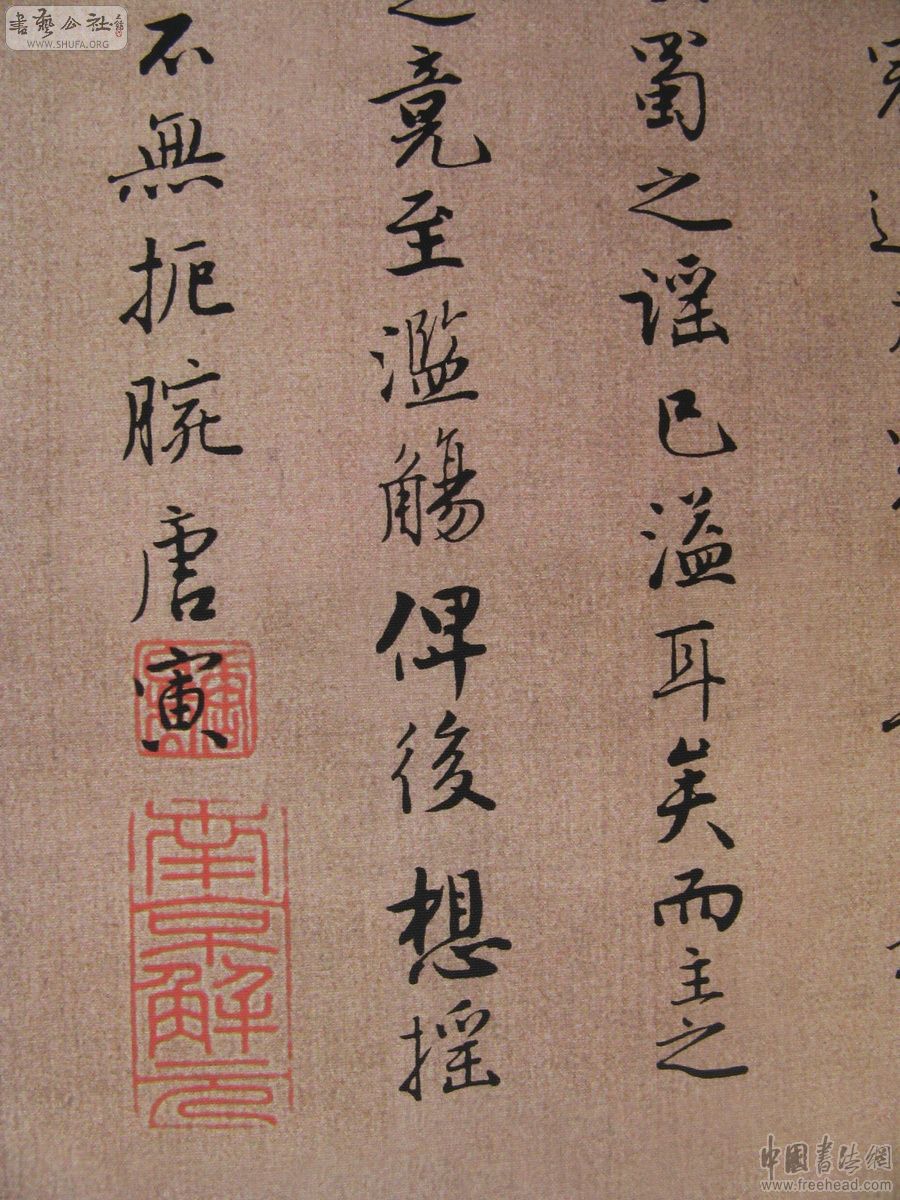 蜀之謡已溢耳矣而主之
之竟至濫觴俾後想摇
不無扼腕唐寅
南京解元
書藝公社
WWW.SHUFA.ORG
中國書法網
www.freehead.com